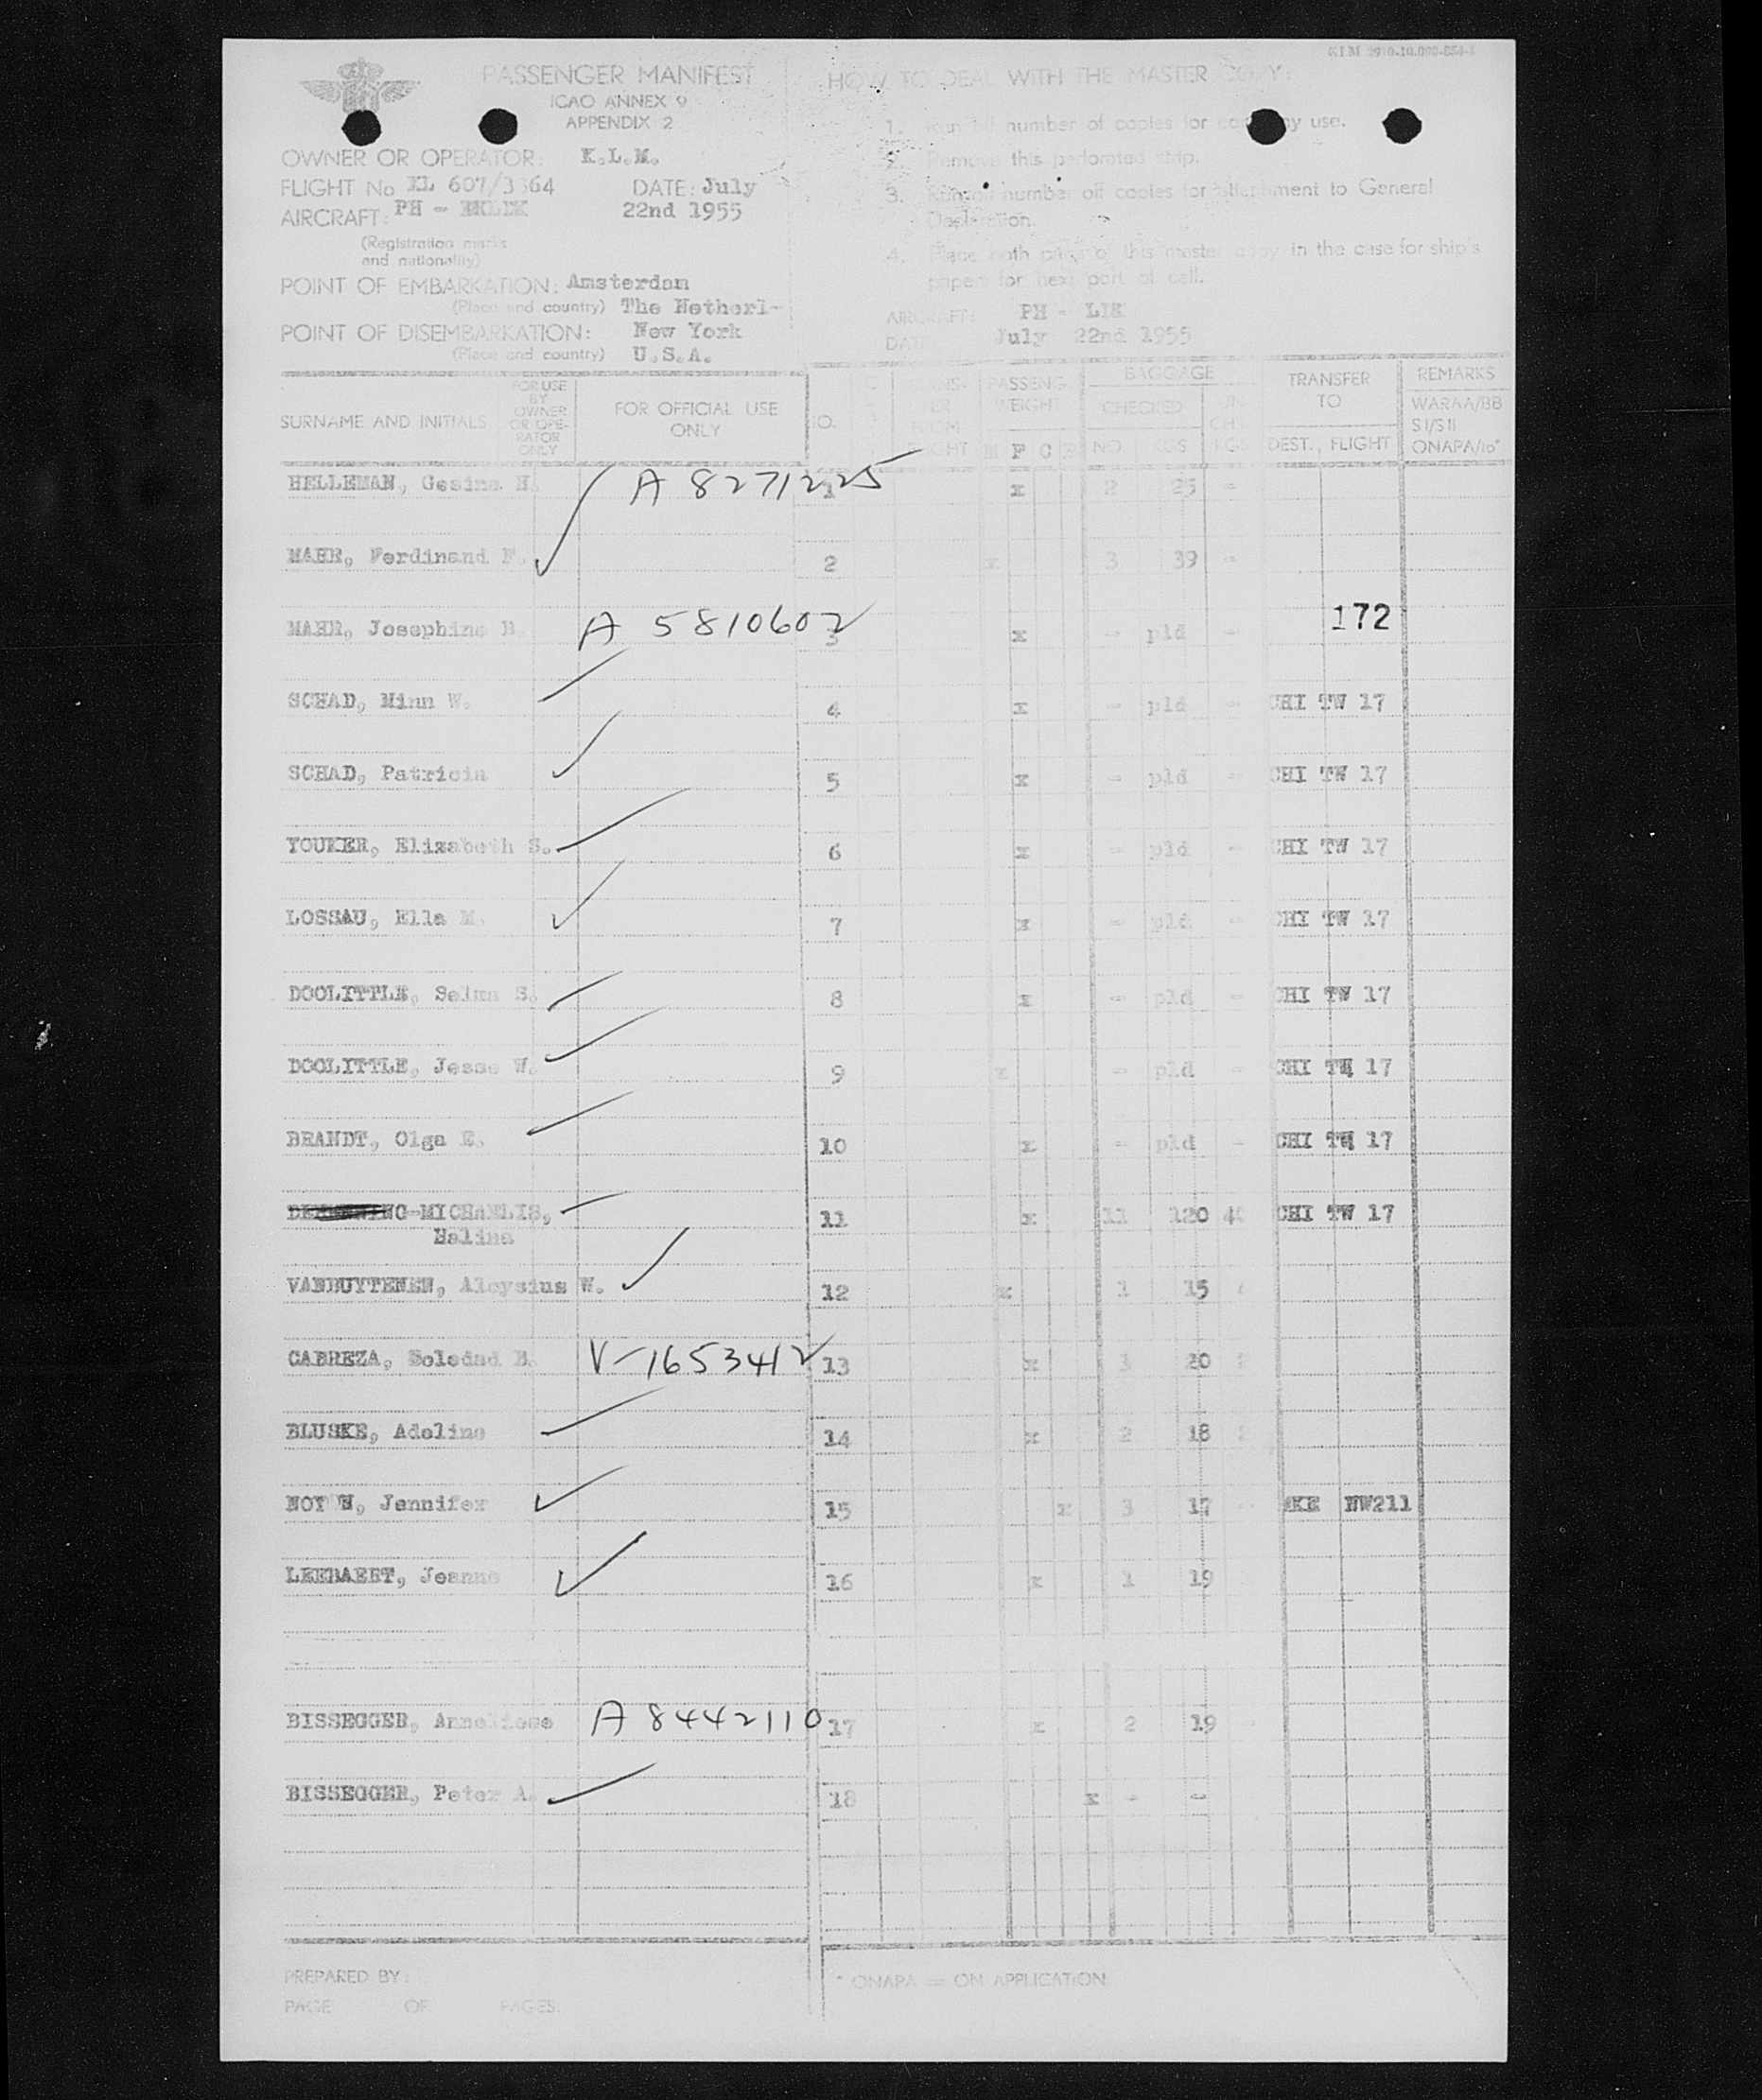 KLM 2910-10.000-854-1
PASSENGER MANIFEST
ICAO ANNEX 9
APPENDIX 2
OWNER OR OPERATOR: K.L.M.
FLIGHT No KL 607/3364 DATE: July
AIRCRAFT: PH - 22nd 1955
(Registration marks
and nationality)
POINT OF EMBARKATION: Amsterdam
(Place and country) The Netherl-
POINT OF DISEMBARKATION: New York
(Place and country) U.S.A.
HOW TO DEAL WITH THE MASTER COPY:
1. Run off number of copies for company use.
2. Remove this perforated strip.
3. Run off number off copies for attachment to General
Declaration.
4. Place both parts of this master copy in the case for ship's
papers for next port of call.
AIRCRAFT: PH - LIK
DATE July 22nd 1955
SURNAME AND INITIALS FOR USE BY OWNER OR OPE-RATOR ONLY FOR OFFICIAL USE ONLY NO. PASSENG. WEIGHT M F C BAGGAGE CHECKED NO. KGS TRANSFER TO DEST. FLIGHT REMARKS WARAA/BB SI/SII ONAPA/10*
HELLEMAN, Gesina H. A 8271225 1 x 2 25 -
MAHR, Ferdinand F. 2 x 3 39 -
MAHR, Josephine B. A 5810602 3 x - pld - 172
SCHAD, Minn W. 4 x - pld - CHI TW 17
SCHAD, Patricia 5 x - pld - CHI TW 17
YOUKER, Elizabeth S. 6 x - pld - CHI TW 17
LOSSAU, Ella M. 7 x - pld - CHI TW 17
DOOLITTLE, Selma S. 8 x - pld - CHI TW 17
DOOLITTLE, Jesse W. 9 x - pld - CHI TW 17
BRANDT, Olga E. 10 x - pld - CHI TW 17
MICHAELIS, 11 x 11 120 CHI TW 17
Halina
VANBUYTENEN, Aloysius W. 12 x 1 15
CABREZA, Soledad B. V-1653412 13 x 20
BLUSKE, Adeline 14 x 2 18
Jennifer 15 x 3 17 MKE NW211
LEEBAERT, Jeanne 16 x 1 19
BISSEGGER, Anneliese A 8442110 17 x 2 19
BISSEGGER, Peter A. 18 x - -
PREPARED BY:
PAGE OF PAGES.
* ONAPA = ON APPLICATION